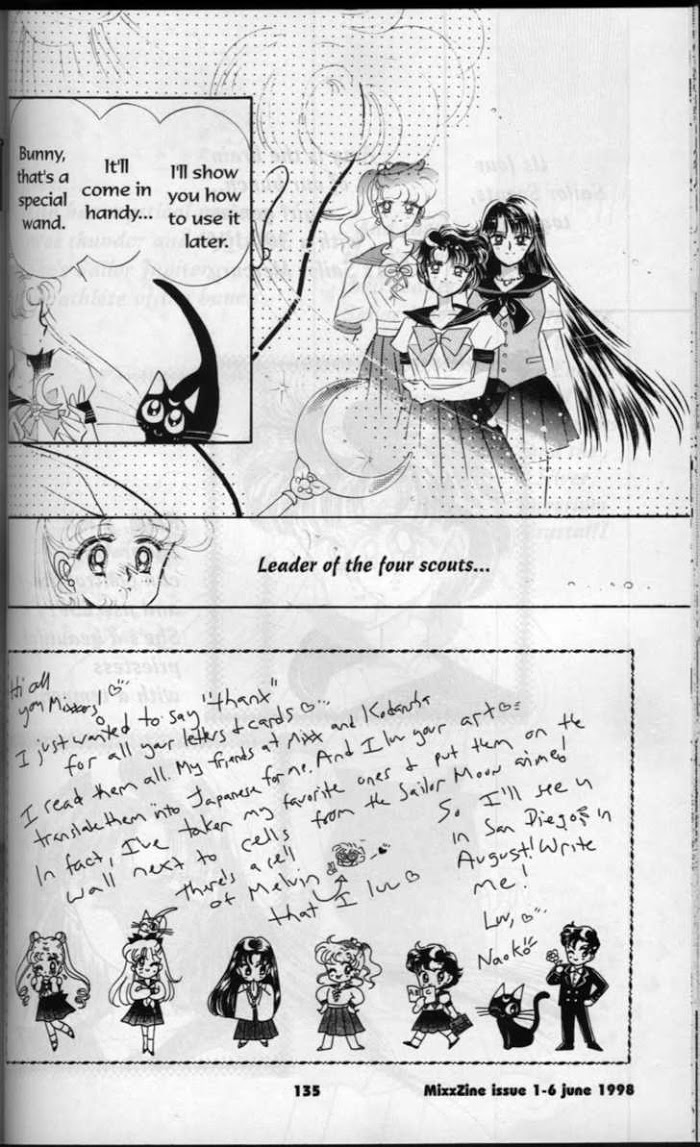 Bunny,
that's a
special
wand.
It'll
come in
handy...
I'll show
you how
to use it
later.
Leader of the four scouts...
Hi all
you Mixxers!
I just wanted to say "thank"
for all your letters & cards
I read them all. My friends at Mixx and Kodansha
translate them into Japanese for me. And I luv your art
In fact, I've taken my favorite ones & put them on the
wall next to cells from the Sailor Moon anime!
there's a cell
of Melvin
that I luv
So I'll see u
in San Diego in
August! Write
me!
Luv,
Naoko
ABC
135
MixxZine issue 1-6 june 1998